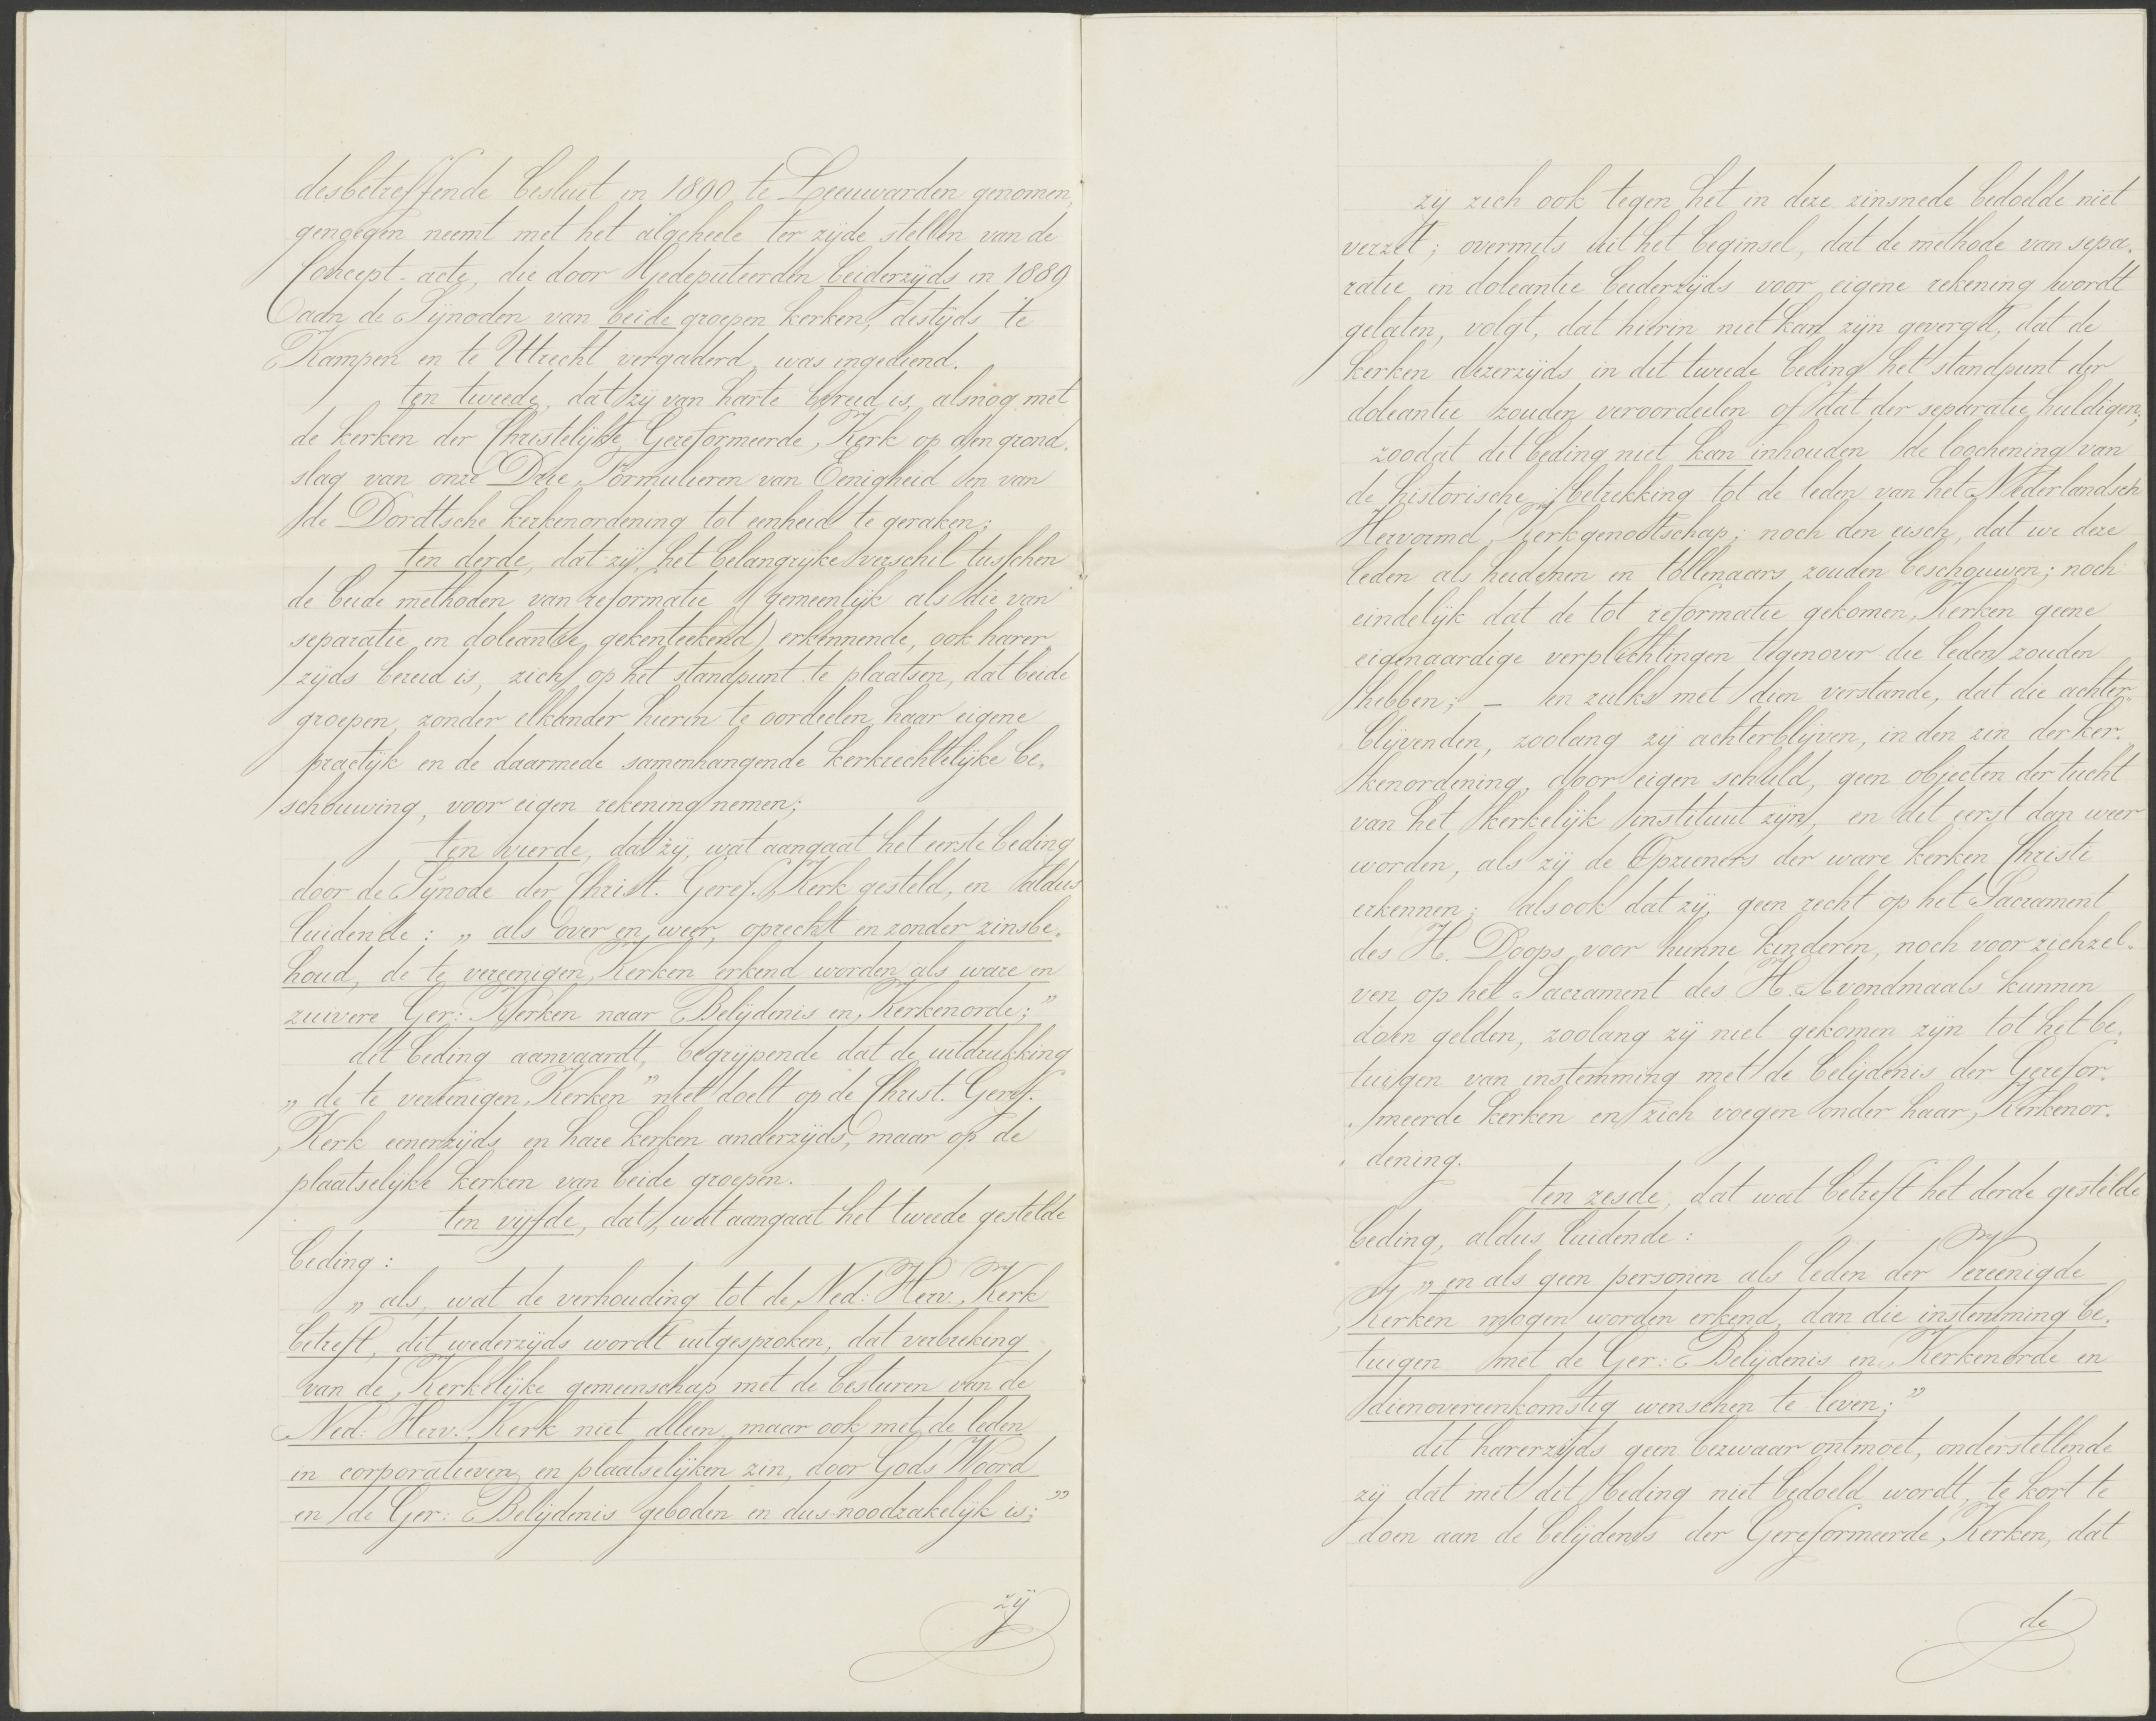 desbetreffende besluit in 1890 te Leeuwarden genomen,
genoegen neemt met het algeheele ter zijde stellen van de
Concept-acte, die door Gedeputeerden beiderzijds in 1889
aan de Synoden van beide groepen kerken, destijds te
Kampen en te Utrecht vergaderd, was ingediend.
ten tweede, dat zij van harte bereid is, alsnog met
de kerken der Christelijke Gereformeerde Kerk op den grond-
slag van onze Drie Formulieren van Eenigheid en van
de Dordtsche kerkenordening tot eenheid te geraken;
ten derde, dat zij, het belangrijke verschil tusschen
de beide methoden van reformatie (gemeenlijk als die van
separatie en doleantie gekenteekend) erkennende, ook harer
zijds bereid is, zich op het standpunt te plaatsen, dat beide
groepen, zonder elkander hierin te oordeelen, haar eigene
practijk en de daarmede samenhangende kerkrechtelijke be-
schouwing, voor eigen rekening nemen;
ten vierde, dat zij, wat aangaat het eerste beding
door de Synode der Christ. Geref. Kerk gesteld, en aldus
luidende: „als over en weer, oprecht en zonder zinsbe-
houd, de te vereenigen Kerken erkend worden als ware en
zuivere Ger: Kerken naar Belijdenis en Kerkenorde;”
dit beding aanvaardt, begrijpende dat de uitdrukking
„de te vereenigen Kerken” niet doelt op de Christ. Geref.
Kerk eenerzijds en hare kerken anderzijds, maar op de
plaatselijke kerken van beide groepen.
ten vijfde, dat, wat aangaat het tweede gestelde
beding:
„als, wat de verhouding tot de Ned: Herv. Kerk
betreft, dit wederzijds wordt uitgesproken, dat verbreking
van de Kerkelijke gemeenschap met de besturen van de
Ned: Herv. Kerk niet alleen, maar ook met de leden
in corporatieven en plaatselijken zin, door Gods Woord
en de Ger: Belijdenis geboden en dus noodzakelijk is;”
zij
zij zich ook tegen het in deze zinsnede bedoelde niet
verzet; overmits uit het beginsel, dat de methode van sepa-
ratie en doleantie beiderzijds voor eigene rekening wordt
gelaten, volgt, dat hierin niet kan zijn gevergd, dat de
kerken dezerzijds in dit tweede beding het standpunt der
doleantie zouden veroordeelen of dat der separatie huldigen;
zoodat dit beding niet kan inhouden de loochening van
de historische betrekking tot de leden van het Nederlandsch
Hervormd Kerkgenootschap; noch den eisch, dat we deze
leden als heidenen en tollenaars zouden beschouwen; noch
eindelijk dat de tot reformatie gekomen Kerken geene
eigenaardige verplichtingen tegenover die leden zouden
hebben; – en zulks met dien verstande, dat die achter-
blijvenden, zoolang zij achterblijven, in den zin der ker-
kenordening, door eigen schuld, geen objecten der tucht
van het kerkelijk instituut zijn, en dit eerst dan weer
worden, als zij de Opzieners der ware kerken Christi
erkennen; alsook dat zij, geen recht op het Sacrament
des H. Doops voor hunne kinderen, noch voor zichzel-
ven op het Sacrament des H. Avondmaals kunnen
doen gelden, zoolang zij niet gekomen zijn tot het be-
tuigen van instemming met de belijdenis der Gerefor-
meerde kerken en zich voegen onder haar Kerkenor-
dening.
ten zesde, dat wat betreft het derde gestelde
beding, aldus luidende:
„en als geen personen als leden der Vereenigde
Kerken mogen worden erkend, dan die instemming be-
tuigen met de Ger: Belijdenis en Kerkenorde en
dienovereenkomstig wenschen te leven;”
dit harerzijds geen bezwaar ontmoet, onderstellende
zij dat met dit beding niet bedoeld wordt, te kort te
doen aan de belijdenis der Gereformeerde Kerken, dat
de